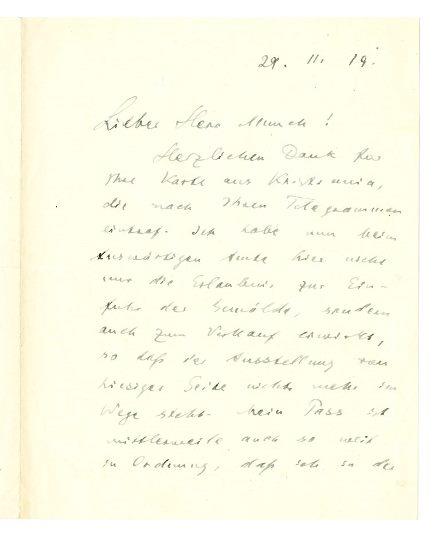 29. 11. 19.
Lieber Herr Munch!
Herzlichen Dank für
Ihre Karte aus Kristiania,
die nach Ihren Telegrammen
eintraf. Ich habe nun beim
Auswärtigen Amte hier nicht
nur die Erlaubnis zur Ein-
fuhr der Gemälde, sondern
auch zum Verkauf erwirkt,
so daß der Ausstellung von
hiesiger Seite nichts mehr im
Wege steht. Mein Pass ist
mittlerweile auch so weit
in Ordnung, daß ich in der